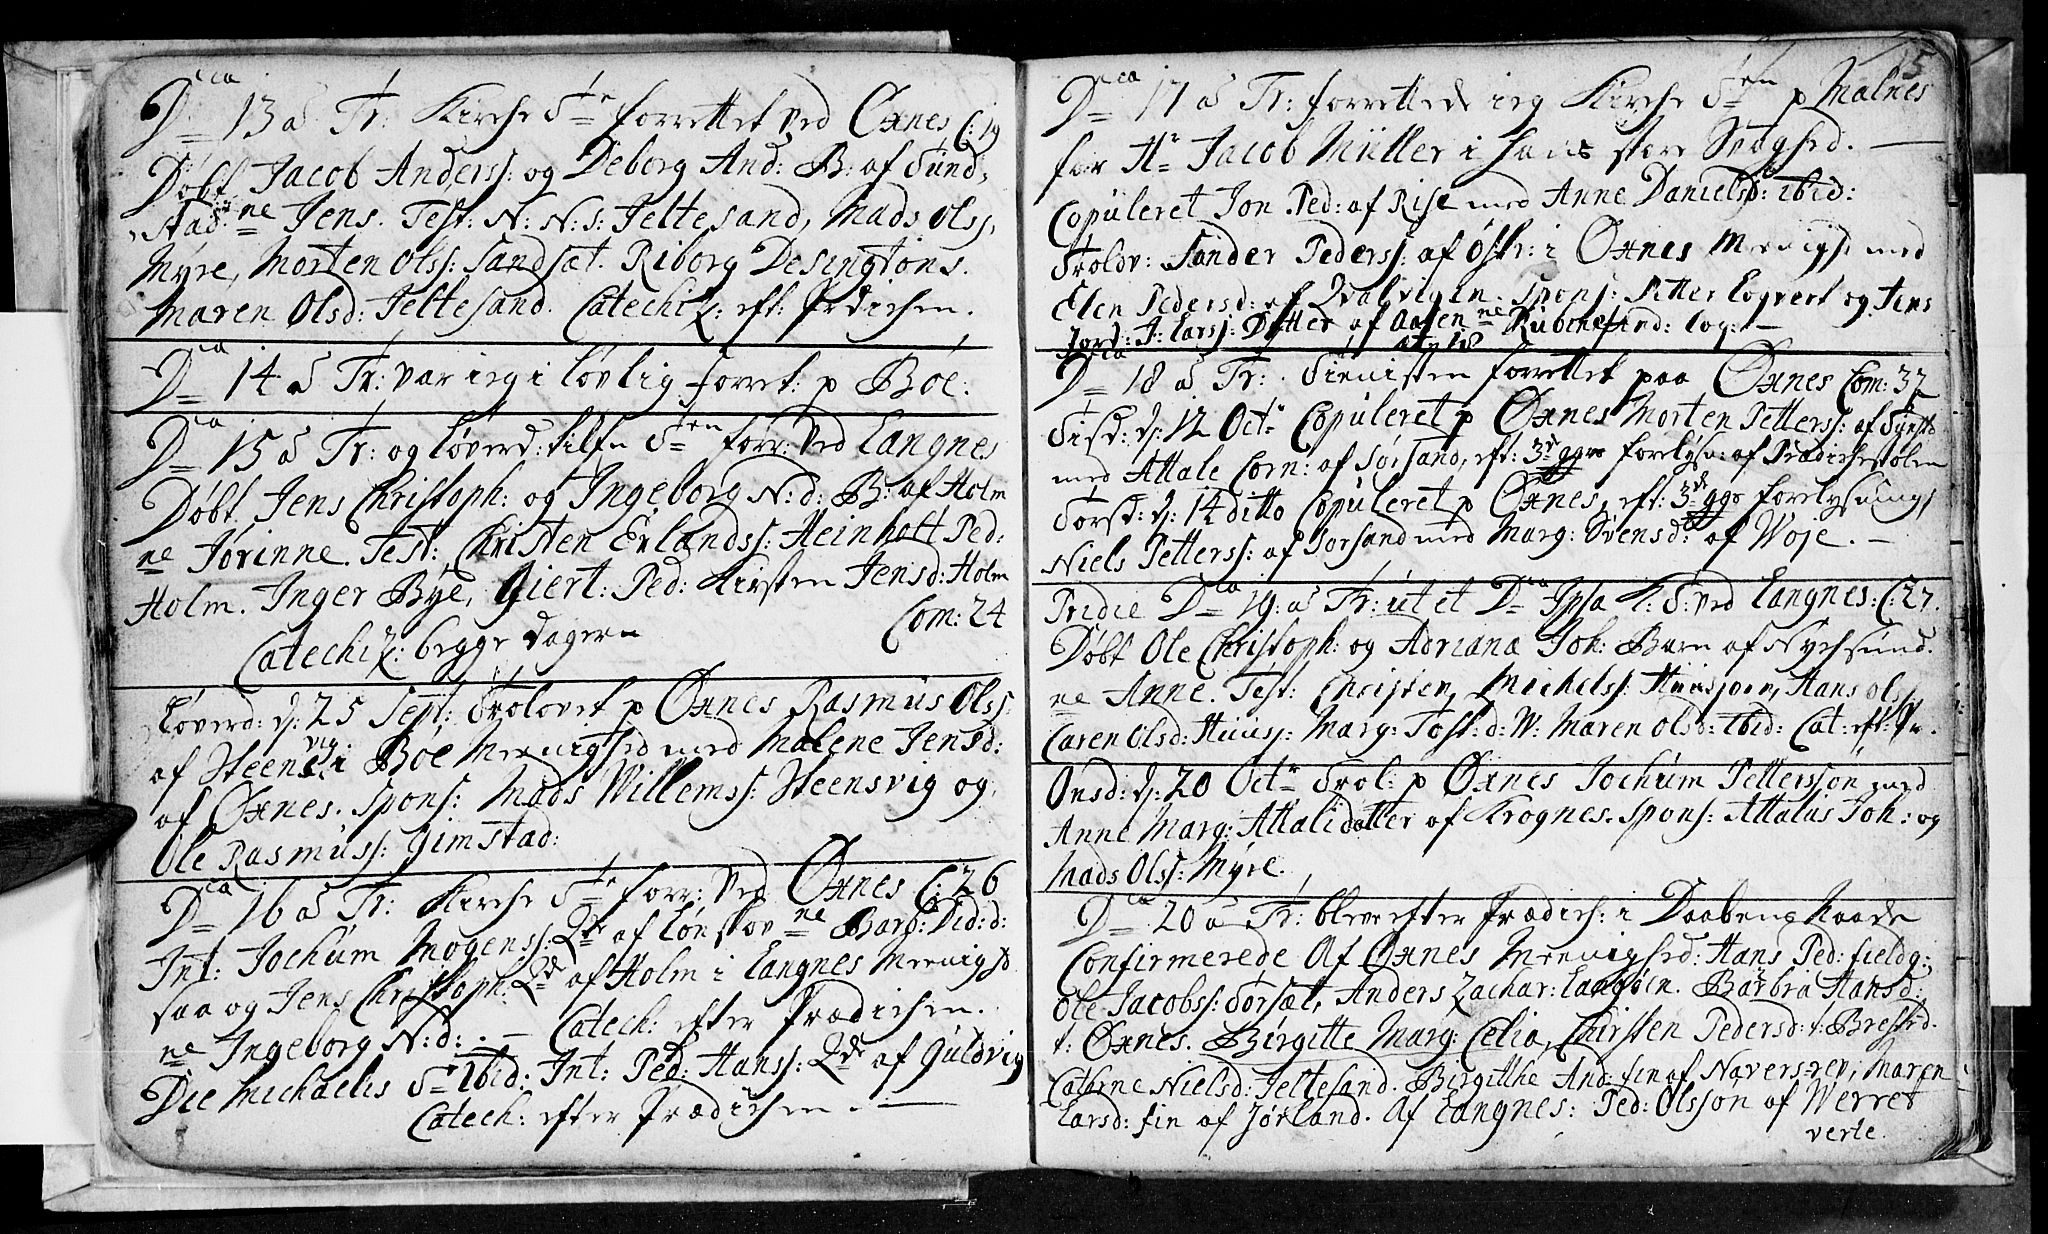 D^ca 13 à Tr: Kirche S^te forrettet ved Øxnes C: 19
Døbt Jacob Anderss: og Deborg And: B: af Sund,
stad. ne Jens. Test: N: N: s: Jeltesand, Mads Olss,
Myre, Morten Olss: Sandsæt. Riborg Desingtons.
Maren Olsd: Jeltesand. Catechiz: eft: Prædichen.
D^ca 14 à Tr: var ieg i lovlig forret: p Bøe:
D^ca 15 à Tr: og løverd: S^en forr: ved Langnes
Døbt Jens Christoph: og Ingeborg N: d: B: af Holm
ne Jørinne. Test: Christen Erlandss: Heinholt Ped:
Holm. Inger Bye, Giert: Ped: Kirsten Jensd: Holm
Catechiz: begge dagern Com: 24
Løverd: d: 25 Sept: Trolovet p Øxnes Rasmus Olss:
af Steensvig i Bøe Meenighed med Malene Jensd:
af Øxnes. Spons: Mads Willemss: Steensvig og
Ole Rasmuss: Gimstad:
D^ca 16 à Tr: Kirche S^te forr: ved Øxnes C: 26
Int: Jochum Mogenss: Q^de af Lønskov ne Barb: Did: d:
saa og Jens Christoph: Q^de af Holm i Langnes Meenigh
ne Ingeborg N: d: . – Catech: efter Prædichen.
Die Michaelis S^te Ibid: Int: Ped: Hanss: Q^de af Guldvig
Catech: efter Prædichen. —
15
D^ca 17 à Tr: forrettede ieg Kirche S^ten p Malnes
for H^r Jacob Müller i hans store Svaghed. —
Copuleret Jon Ped: af Rise med Anne Danielsd: ibid:
Trolov: Sander Pederss: af Østr: i Øxnes Meenigh med
Elen Pedersd: af Qvalvigen. Spons: Petter Logvert og Jens
Larss: af Aasen ne Rubene And: Log: —
D^ca 18 à Tr: Tienisten forrettet paa Øxnes Com: 32
Tisd: d: 12 Oct^r Copuleret p Øxnes Morten Petterss: af
med Attale Corn: af Sørsand, eft: 3^de ggr forelysn: af Prædichestolen
Torsd: d: 14 ditto Copuleret p Øxnes, eft: 3^de ggr forelysning,
Niels Petterss: af Sorsand med Marg: Svensd: af Woje. —
Pridie D^ca 19. à Tr: ut et D^ca Ipsa K: S: ved Langnes: C: 27.
Døbt Ole Christoph: og Adriana Joh: Barn af Nychsund.
ne Anne. Test: Christen Michelss: Huusjoen, Hans Olss,
Caren Olsd: Huusj: Marg: Tost: d: W: Maren Olsd: ibid: Cat: eft: Pr.
Onsd: d: 20 Oct^r Trol: p Øxnes Jochum Pettersson med
Anne Marg: Attalidatter af Krognes. Spons: Attalus Joh: og
Mads Olss: Myre.
D^ca 20 à Tr: bleve efter Prædich: i Daabens Naade
Confirmerede Af Øxnes Meenighed: Hans Ped: fieldg:,
Ole Jacobss: Sørsæt, Anders Zachar: Langøen. Barbra Hansd:
t: Øxnes. Birgitte Marg: Celia, Chirsten Pedersd: t: Brestrd.
Catrine Nielsd: Jeltesand. Birgitthe And: fin af Naversrev, Maren
Larsd: fin af Jørland. Af Langnes: Ped: Olsson af Werret
verte.